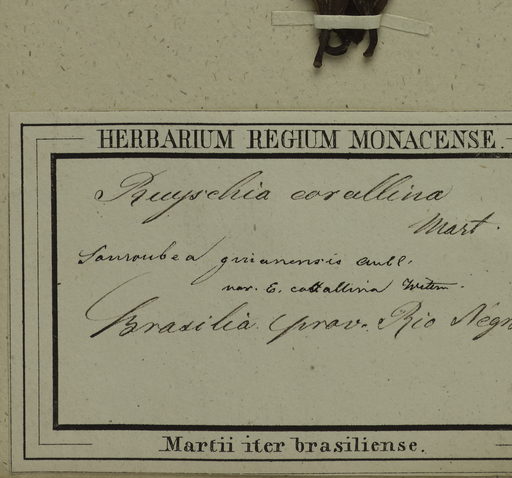 HERBARIUM REGIUM MONACENSE.
Ruyschia corallina
Mart.
Souroubea guianensis Aubl.
var. E. corallina Wittm.
Brasilia prov. Rio Negr
Martii iter brasiliense.